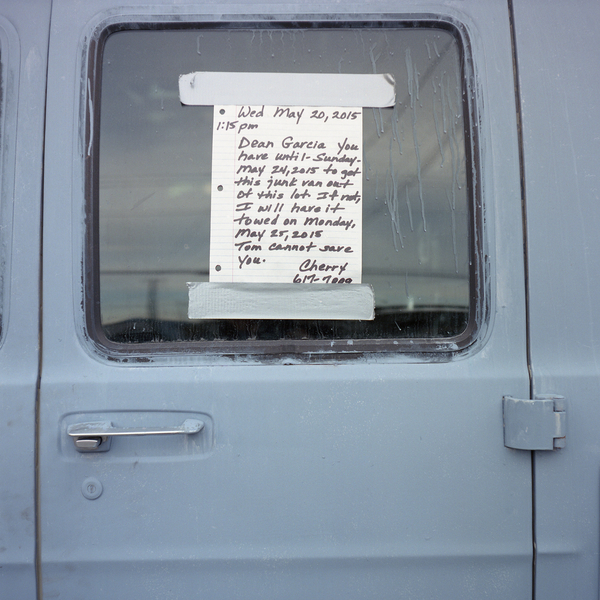 Wed May 20, 2015
1:15 pm
Dean Garcia You
have until - Sunday.
May 24, 2015 to get
this junk van out
of this lot If not,
I will have it
towed on Monday,
May 25, 2015
Tom cannot save
you.
Cherry
617-7000